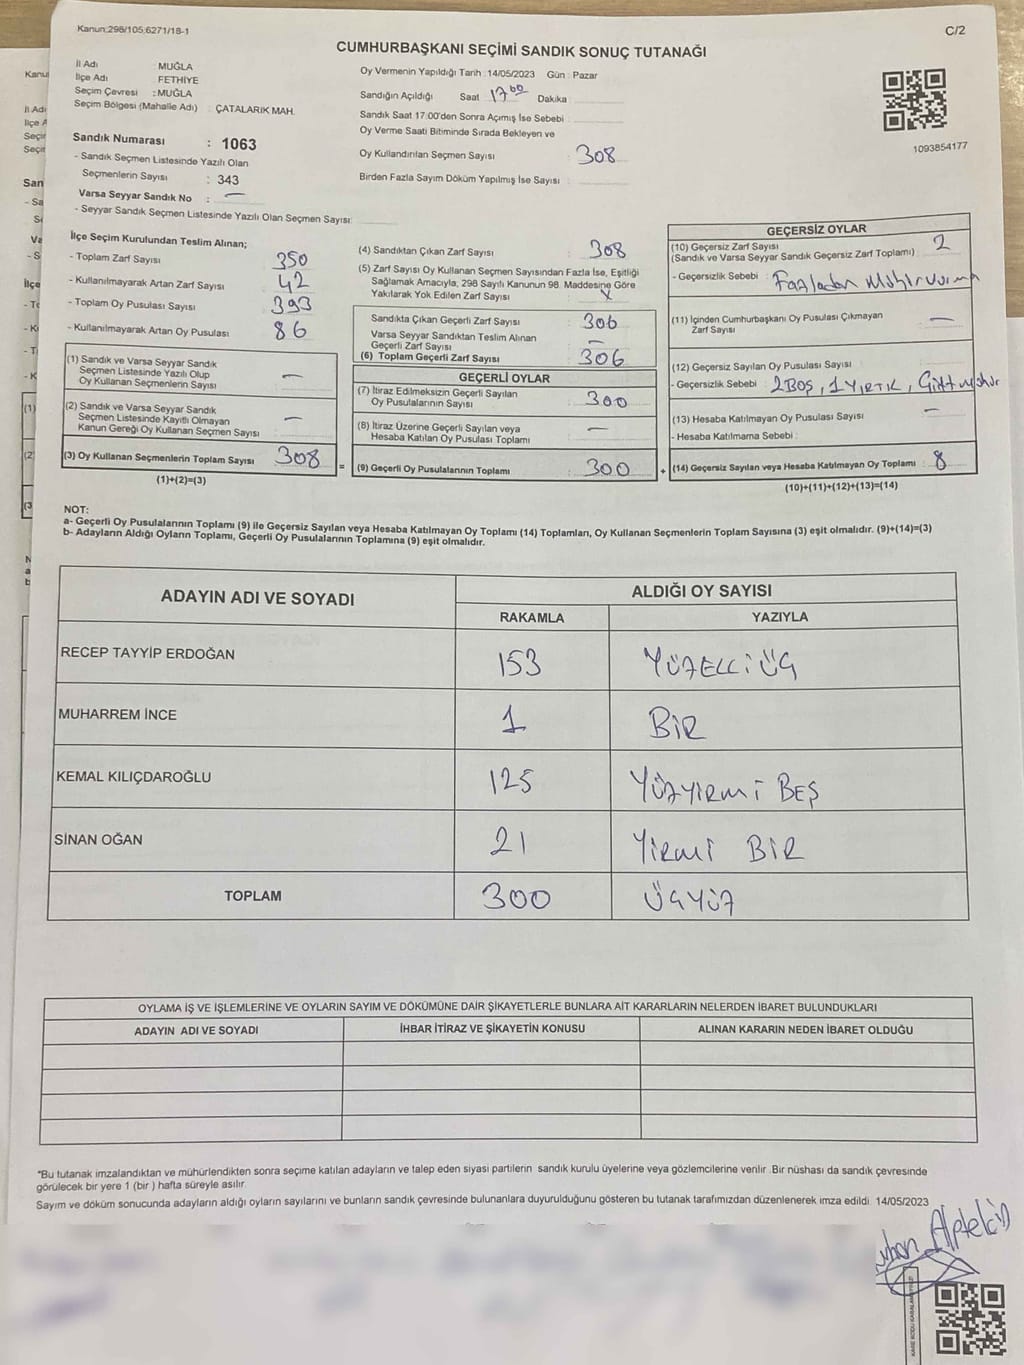 Kanun:298/105;6271/18-1
C/2
CUMHURBAŞKANI SEÇİMİ SANDIK SONUÇ TUTANAĞI
İl Adı MUĞLA
İlçe Adı FETHİYE
Seçim Çevresi : MUĞLA
Seçim Bölgesi (Mahalle Adı) : ÇATALARIK MAH.
Sandık Numarası : 1063
- Sandık Seçmen Listesinde Yazılı Olan
Seçmenlerin Sayısı : 343
Varsa Seyyar Sandık No : —
- Seyyar Sandık Seçmen Listesinde Yazılı Olan Seçmen Sayısı:
Oy Vermenin Yapıldığı Tarih : 14/05/2023 Gün : Pazar
Sandığın Açıldığı Saat 17 00 Dakika :
Sandık Saat 17:00'den Sonra Açılmış İse Sebebi :
Oy Verme Saati Bitiminde Sırada Bekleyen ve
Oy Kullandırılan Seçmen Sayısı : 308
Birden Fazla Sayım Döküm Yapılmış İse Sayısı :
1093854177
İlçe Seçim Kurulundan Teslim Alınan;
- Toplam Zarf Sayısı 350
- Kullanılmayarak Artan Zarf Sayısı 42
- Toplam Oy Pusulası Sayısı 393
- Kullanılmayarak Artan Oy Pusulası 86
(1) Sandık ve Varsa Seyyar Sandık
Seçmen Listesinde Yazılı Olup
Oy Kullanan Seçmenlerin Sayısı —
(2) Sandık ve Varsa Seyyar Sandık
Seçmen Listesinde Kayıtlı Olmayan
Kanun Gereği Oy Kullanan Seçmen Sayısı —
(3) Oy Kullanan Seçmenlerin Toplam Sayısı 308
(1)+(2)=(3)
(4) Sandıktan Çıkan Zarf Sayısı : 308
(5) Zarf Sayısı Oy Kullanan Seçmen Sayısından Fazla İse, Eşitliği
Sağlamak Amacıyla, 298 Sayılı Kanunun 98. Maddesine Göre
Yakılarak Yok Edilen Zarf Sayısı : X
Sandıkta Çıkan Geçerli Zarf Sayısı : 306
Varsa Seyyar Sandıktan Teslim Alınan
Geçerli Zarf Sayısı : —
(6) Toplam Geçerli Zarf Sayısı : 306
GEÇERLİ OYLAR
(7) İtiraz Edilmeksizin Geçerli Sayılan
Oy Pusulalarının Sayısı : 300
(8) İtiraz Üzerine Geçerli Sayılan veya
Hesaba Katılan Oy Pusulası Toplamı : —
= (9) Geçerli Oy Pusulalarının Toplamı : 300
GEÇERSİZ OYLAR
(10) Geçersiz Zarf Sayısı : 2
(Sandık ve Varsa Seyyar Sandık Geçersiz Zarf Toplamı)
- Geçersizlik Sebebi : Fazladan Mühürvurma
(11) İçinden Cumhurbaşkanı Oy Pusulası Çıkmayan
Zarf Sayısı : —
(12) Geçersiz Sayılan Oy Pusulası Sayısı :
- Geçersizlik Sebebi : 2 BOŞ, 1 YIRTIK,
(13) Hesaba Katılmayan Oy Pusulası Sayısı : —
- Hesaba Katılmama Sebebi :
+ (14) Geçersiz Sayılan veya Hesaba Katılmayan Oy Toplamı : 8
(10)+(11)+(12)+(13)=(14)
NOT:
a- Geçerli Oy Pusulalarının Toplamı (9) ile Geçersiz Sayılan veya Hesaba Katılmayan Oy Toplamı (14) Toplamları, Oy Kullanan Seçmenlerin Toplam Sayısına (3) eşit olmalıdır. (9)+(14)=(3)
b- Adayların Aldığı Oyların Toplamı, Geçerli Oy Pusulalarının Toplamına (9) eşit olmalıdır.
ADAYIN ADI VE SOYADI
ALDIĞI OY SAYISI
RAKAMLA YAZIYLA
RECEP TAYYİP ERDOĞAN 153 YÜZELLİÜÇ
MUHARREM İNCE 1 BİR
KEMAL KILIÇDAROĞLU 125 YÜZYİRMİ BEŞ
SİNAN OĞAN 21 YİRMİ BİR
TOPLAM 300 ÜÇYÜZ
OYLAMA İŞ VE İŞLEMLERİNE VE OYLARIN SAYIM VE DÖKÜMÜNE DAİR ŞİKAYETLERLE BUNLARA AİT KARARLARIN NELERDEN İBARET BULUNDUKLARI
ADAYIN ADI VE SOYADI İHBAR İTİRAZ VE ŞİKAYETİN KONUSU ALINAN KARARIN NEDEN İBARET OLDUĞU
*Bu tutanak imzalandıktan ve mühürlendikten sonra seçime katılan adayların ve talep eden siyasi partilerin sandık kurulu üyelerine veya gözlemcilerine verilir .Bir nüshası da sandık çevresinde
görülecek bir yere 1 (bir ) hafta süreyle asılır.
Sayım ve döküm sonucunda adayların aldığı oyların sayılarını ve bunların sandık çevresinde bulunanlara duyurulduğunu gösteren bu tutanak tarafımızdan düzenlenerek imza edildi. 14/05/2023
Alptekin